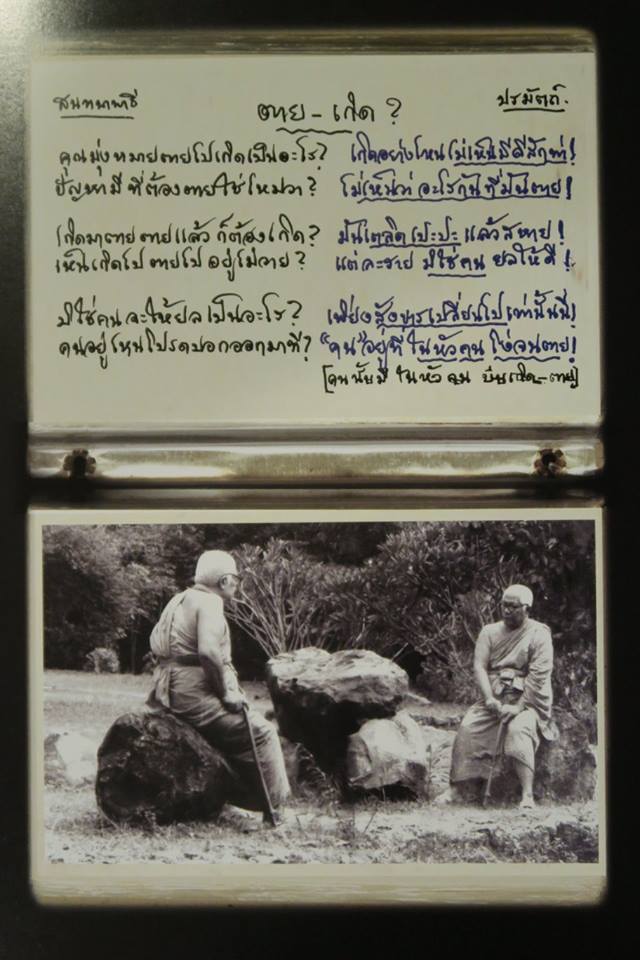 สนทนาพาธี
ปรมัตถ์.
ตาย - เกิด ?
คุณมุ่งหมายตายไปเกิดเป็นอะไร? เกิดอย่างไหนไม่เห็นมีดีสักท่า!
ปัญหามีที่ต้องตายใช่ไหมวา? ไม่เห็นว่าอะไรกันที่มันตาย!
เกิดมาตายตายแล้วก็ต้องเกิด? มันเตลิดเปะปะแล้วสหาย!
เห็นเกิดไปตายไปอยู่ไม่วาย? แต่ละราย มิใช่คน ยลให้ดี!
มิใช่คนจะให้ยลเป็นอะไร? เพียงสังขารเปลี่ยนไปเท่านั้นนี่!
คนอยู่ไหนโปรดบอกออกมาที? "คน"อยู่ที่ในหัวคนโง่จนตาย!
[คนนั้นมี ในหัวคน เกิด-ตาย]